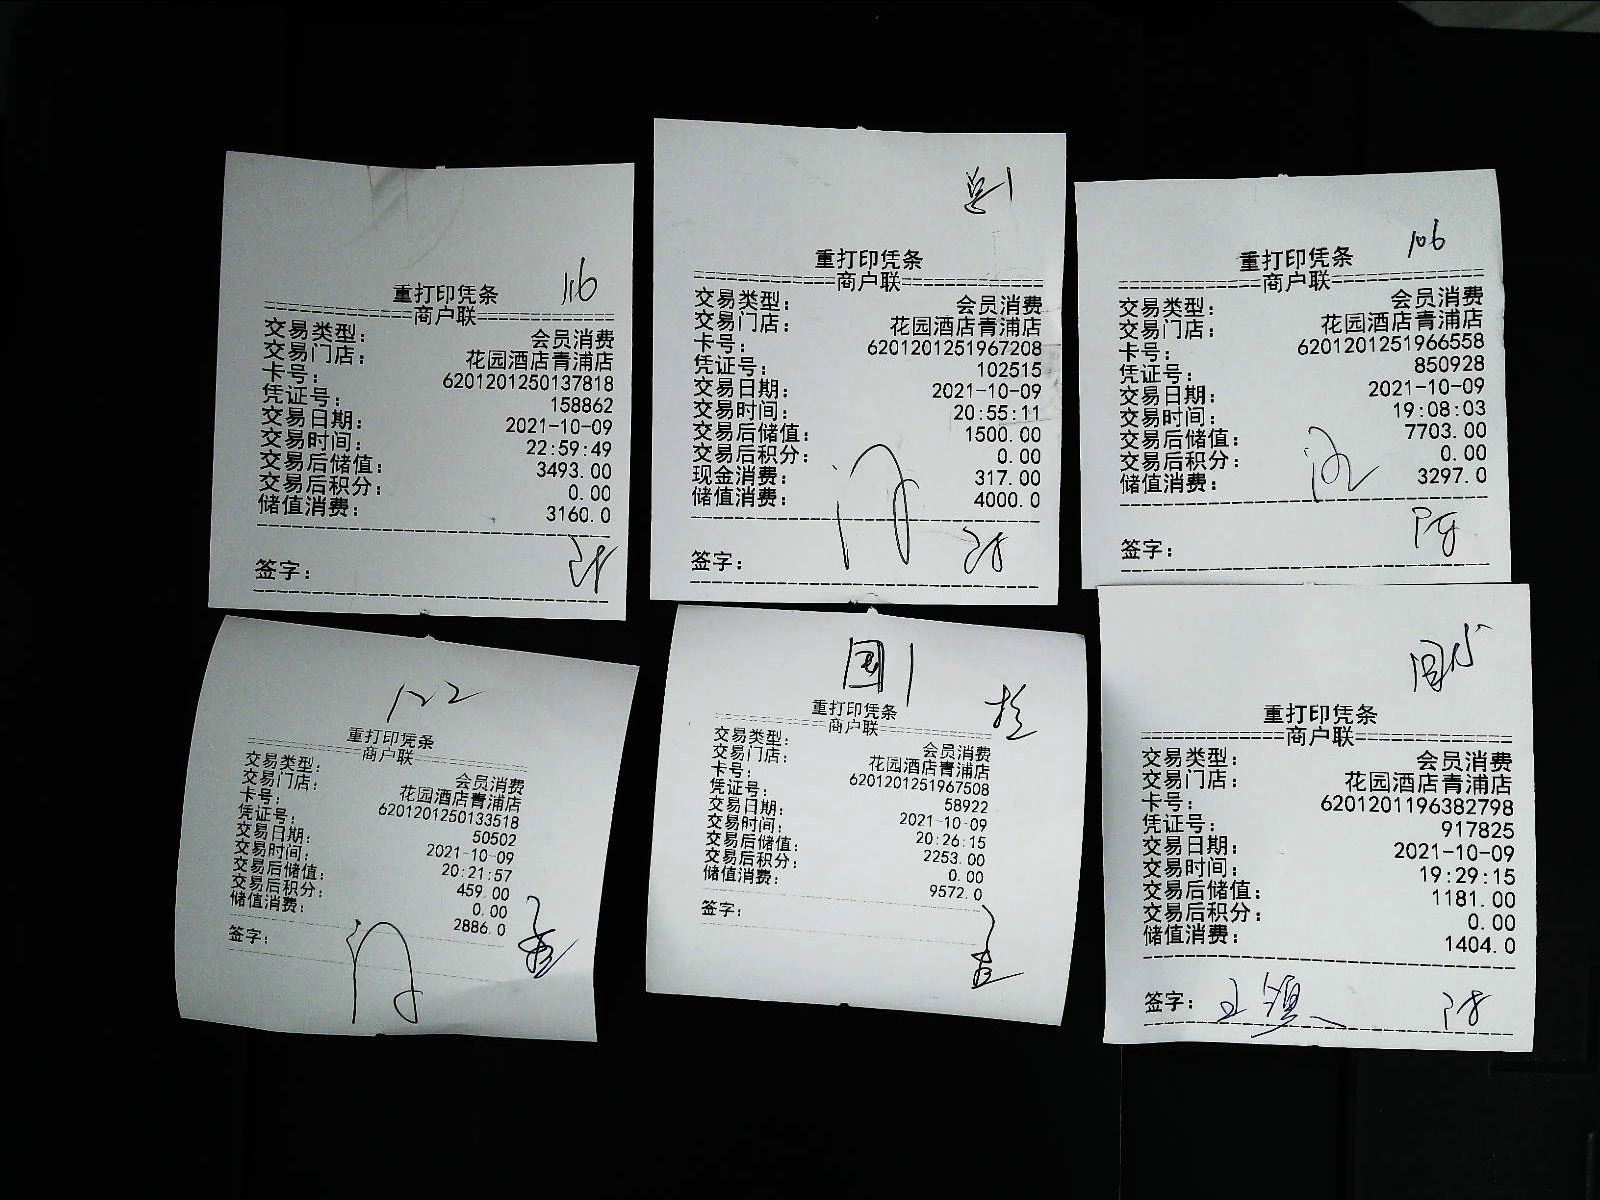 116
重打印凭条
================商户联================
交易类型： 会员消费
交易门店： 花园酒店青浦店
卡号： 6201201250137818
凭证号： 158862
交易日期： 2021-10-09
交易时间： 22:59:49
交易后储值： 3493.00
交易后积分： 0.00
储值消费： 3160.0
签字：
重打印凭条
================商户联================
交易类型： 会员消费
交易门店： 花园酒店青浦店
卡号： 6201201251967208
凭证号： 102515
交易日期： 2021-10-09
交易时间： 20:55:11
交易后储值： 1500.00
交易后积分： 0.00
现金消费： 317.00
储值消费： 4000.0
签字：
106
重打印凭条
================商户联================
交易类型： 会员消费
交易门店： 花园酒店青浦店
卡号： 6201201251966558
凭证号： 850928
交易日期： 2021-10-09
交易时间： 19:08:03
交易后储值： 7703.00
交易后积分： 0.00
储值消费： 3297.0
签字：
122
重打印凭条
================商户联================
交易类型： 会员消费
交易门店： 花园酒店青浦店
卡号： 6201201250133518
凭证号： 50502
交易日期： 2021-10-09
交易时间： 20:21:57
交易后储值： 459.00
交易后积分： 0.00
储值消费： 2886.0
签字：
国1
重打印凭条
================商户联================
交易类型： 会员消费
交易门店： 花园酒店青浦店
卡号： 6201201251967508
凭证号： 58922
交易日期： 2021-10-09
交易时间： 20:26:15
交易后储值： 2253.00
交易后积分： 0.00
储值消费： 9572.0
签字：
重打印凭条
================商户联================
交易类型： 会员消费
交易门店： 花园酒店青浦店
卡号： 6201201196382798
凭证号： 917825
交易日期： 2021-10-09
交易时间： 19:29:15
交易后储值： 1181.00
交易后积分： 0.00
储值消费： 1404.0
签字：